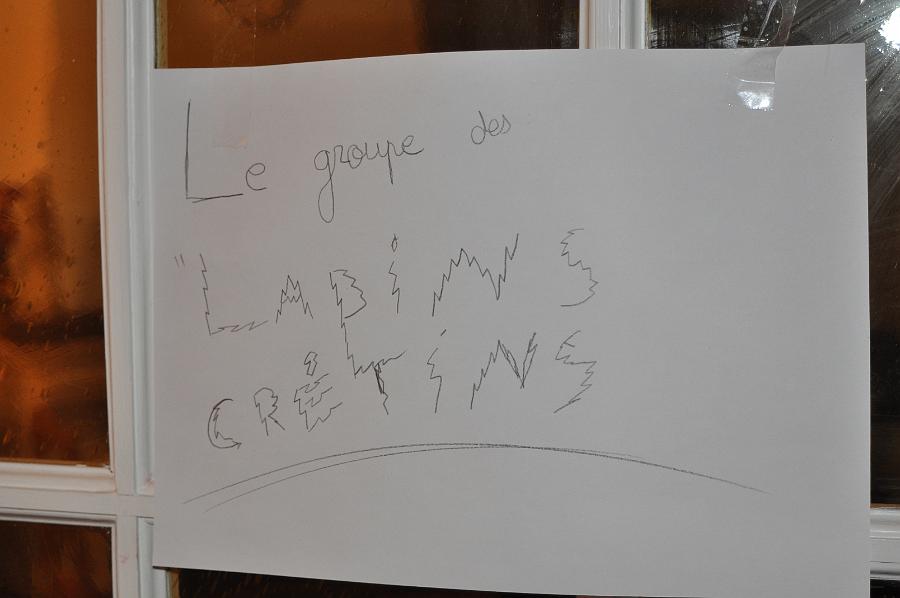 Le groupe des
"LABiNS
CRÉTiNS